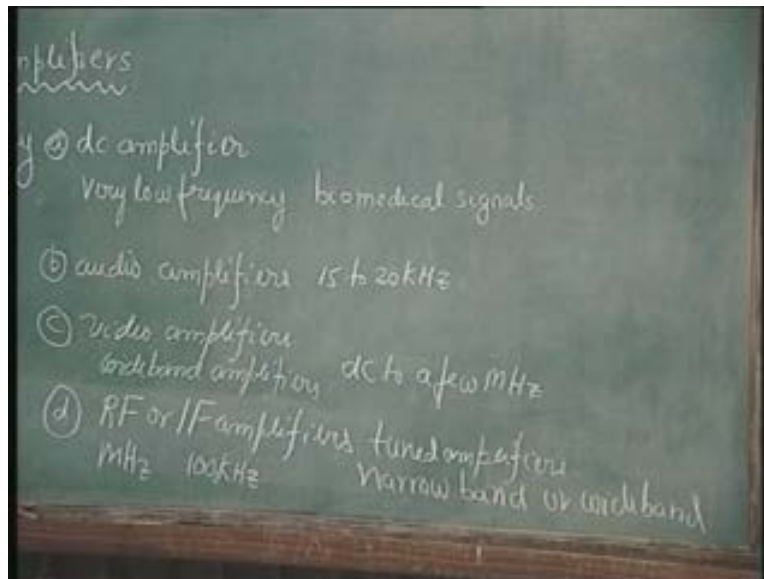 nplifiers
y (a) dc amplifier
very low frequency biomedical signals
(b) audio amplifiers 15 to 20kHz
(c) video amplifiers
wideband amplifiers dc to a few MHz
(d) RF or IF amplifiers tuned amplifiers
MHz 100kHz narrow band or wideband